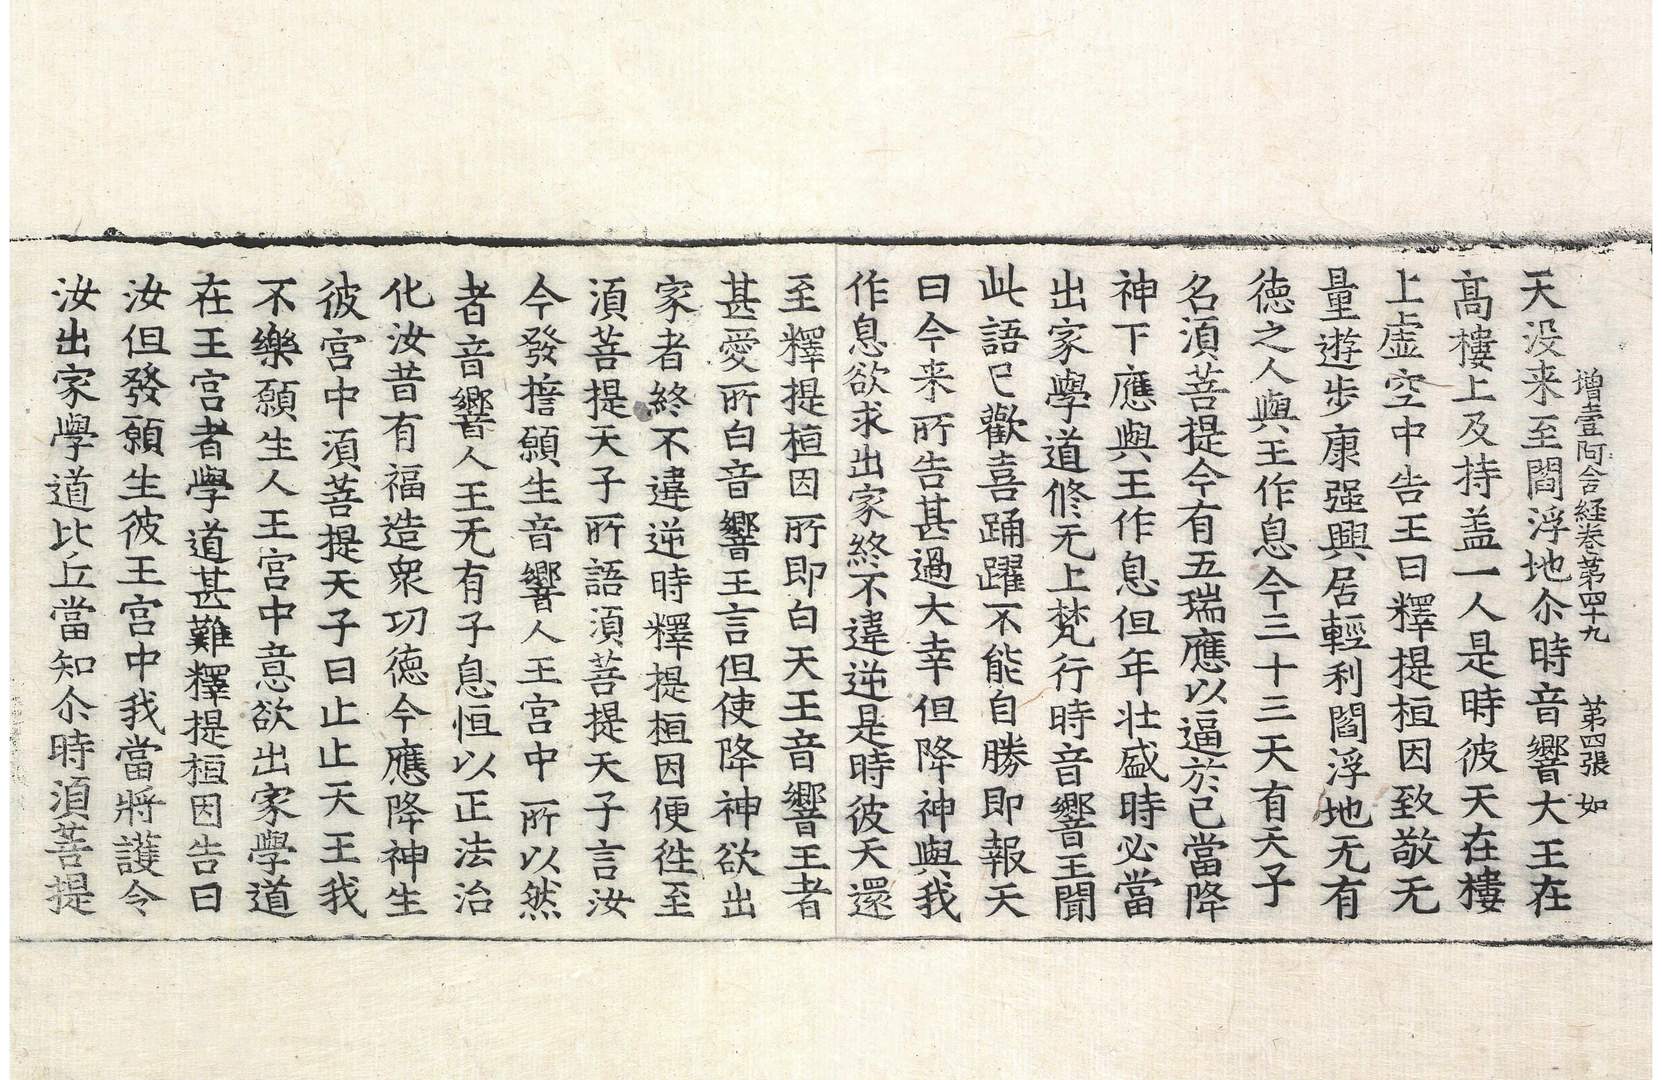 增壹阿含経卷第四十九　第四張　如
天没来至閻浮地尒時音響大王在
髙樓上及持盖一人是時彼天在樓
上虚空中告王曰釋提桓因致敬无
量遊步康强興居輕利閻浮地无有
徳之人與王作息今三十三天有天子
名湏菩提今有五瑞應以逼於已當降
神下應與王作息但年壮盛時必當
出家學道修无上梵行時音響王聞
此語已歡喜踊躍不能自勝即報天
曰今来所告甚過大幸但降神與我
作息欲求出家終不違逆是時彼天還
至釋提桓因所即白天王音響王者
甚愛所白音響王言但使降神欲出
家者終不違逆時釋提桓因便徃至
湏菩提天子所語湏菩提天子言汝
今發擔願生音響人王宫中所以然
者音響人王无有子息恒以正法治
化汝昔有福造衆功徳今應降神生
彼宫中湏菩提天子曰止止天王我
不樂願生人王宫中意欲出家學道
在王宫者學道甚難釋提桓因告曰
汝但發願生彼王宫中我當將護令
汝出家學道比丘當知尒時湏菩提